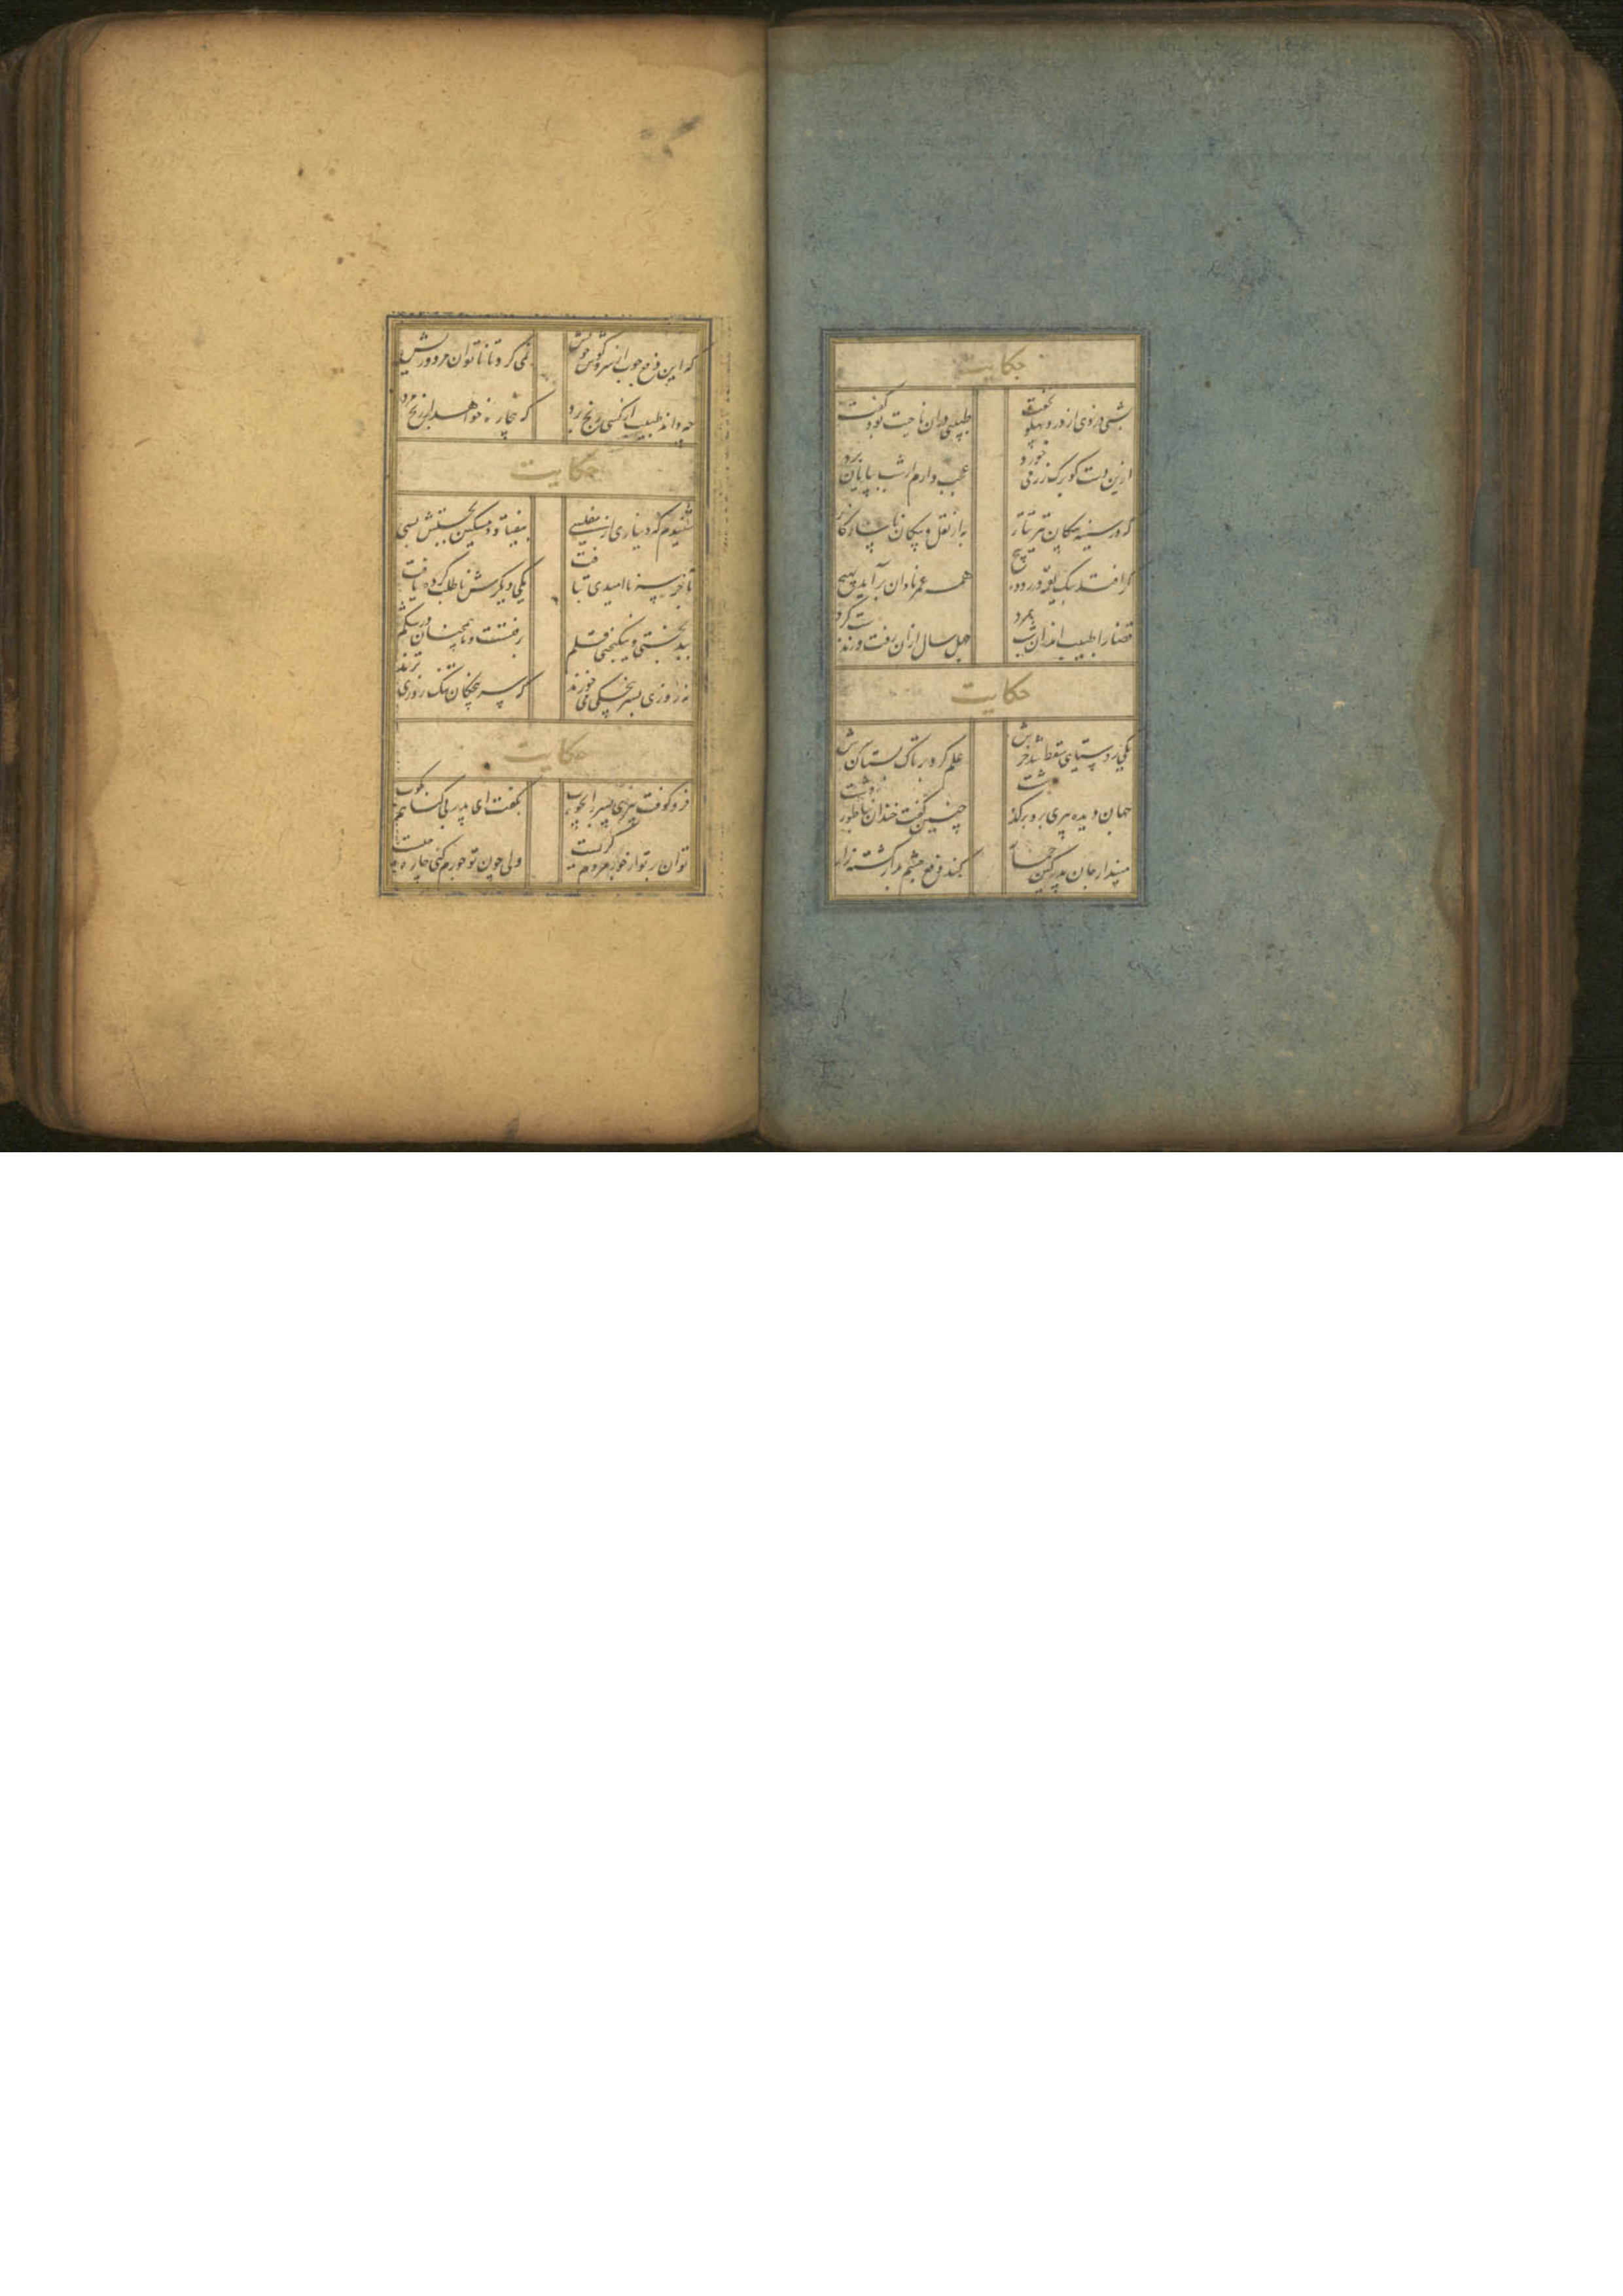 حکایت
شبی کردی از درد پهلو نخفت طبیبی دران ناحیت بود گفت
ازین دست کو برک رز می خورد عجب دارم ار شب بپایان برد
که در سینه پیکان تیر تتار به از نقل و پیکان ناسازکار
کر افتد بیک لقمه در روده پیچ همه عمر نادان برآید بهیچ
قضا را طبیب اندران شب بمرد چهل سال ازان رفت و زندست کرد
حکایت
یکی روستایی سقط شد خرش علم کرد بر تاک بستان سرش
جهان دیده پیری برو بر کذشت چنین کفت خندان بناطور دشت
مپندار جان پدر کین حمار کند دفع چشم بد از کشته زار
که این دفع چوب از سر و کوش خویش نمی کرد تا ناتوان مرد و ریش
چه داند طبیب از کسی رنج برد که بیچاره خواهد از رنج مرد
حکایت
شنیدم که دیناری از مفلسی بیفتاد و مسکین بجستش بسی
بآخر سر ناامیدی بتافت یکی دیکرش ناطلب کرده یافت
ببدبختی و نیکبختی قلم برفتست و ما همچنان در شکم
نه روزی بسرپنجکی می خورند که سرپنجکان تنک روزی ترند
حکایت
فرو کوفت پیری پسر را بچوب بکفت ای پدر بی کناهم مکوب
توان بر تو از جور مردم کریست ولی چون تو جورم کنی چاره چیست